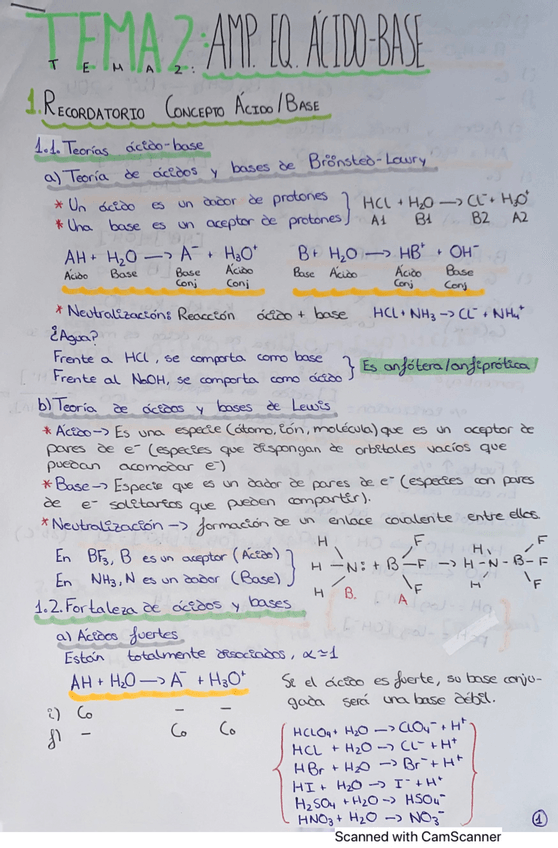 TEMA 2: AMP. EQ. ÁCIDO-BASE
T E M A 2 :
1. RECORDATORIO CONCEPTO ÁCIDO/BASE
1.1. Teorías ácido-base
a) Teoría de ácidos y bases de Brönsted-Lowry
* Un ácido es un dador de protones
* Una base es un aceptor de protones
HCl + H2O → Cl⁻ + H3O⁺
A1 B1 B2 A2
AH + H2O → A⁻ + H3O⁺ B + H2O → HB⁺ + OH⁻
Ácido Base Base Conj Ácido Conj Base Ácido Ácido Conj Base Conj
* Neutralización: Reacción ácido + base HCl + NH3 → Cl⁻ + NH4⁺
¿Agua?
Frente a HCl, se comporta como base
Frente al NaOH, se comporta como ácido
Es anfótera/anfiprótica
b) Teoría de ácidos y bases de Lewis
* Ácido → Es una especie (átomo, ión, molécula) que es un aceptor de
pares de e⁻ (especies que dispongan de orbitales vacíos que
puedan acomodar e⁻)
* Base → Especie que es un dador de pares de e⁻ (especies con pares
de e⁻ solitarios que pueden compartir).
* Neutralización → formación de un enlace covalente entre ellos.
En BF3, B es un aceptor (Ácido)
En NH3, N es un dador (Base)
H H H N: + B F F F → H H H N - B F F F
B. A
1.2. Fortaleza de ácidos y bases
a) Ácidos fuertes
Están totalmente disociados, α≃1
AH + H2O → A⁻ + H3O⁺
i) Co - -
f) - Co Co
Si el ácido es fuerte, su base conju-
gada será una base débil.
HClO4 + H2O → ClO4⁻ + H⁺
HCl + H2O → Cl⁻ + H⁺
HBr + H2O → Br⁻ + H⁺
HI + H2O → I⁻ + H⁺
H2SO4 + H2O → HSO4⁻
HNO3 + H2O → NO3⁻
1
Scanned with CamScanner